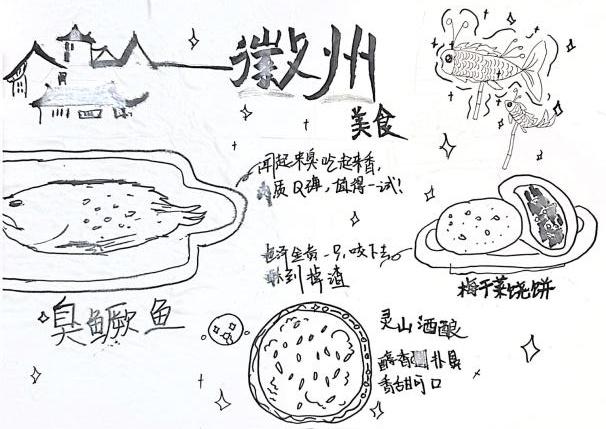 徽州
美食
闻起来臭吃起来香,
肉质Q弹,值得一试!
色泽金黄一口咬下去
酥到掉渣
梅干菜烧饼
臭鳜鱼
灵山酒酿
醇香扑鼻
香甜可口